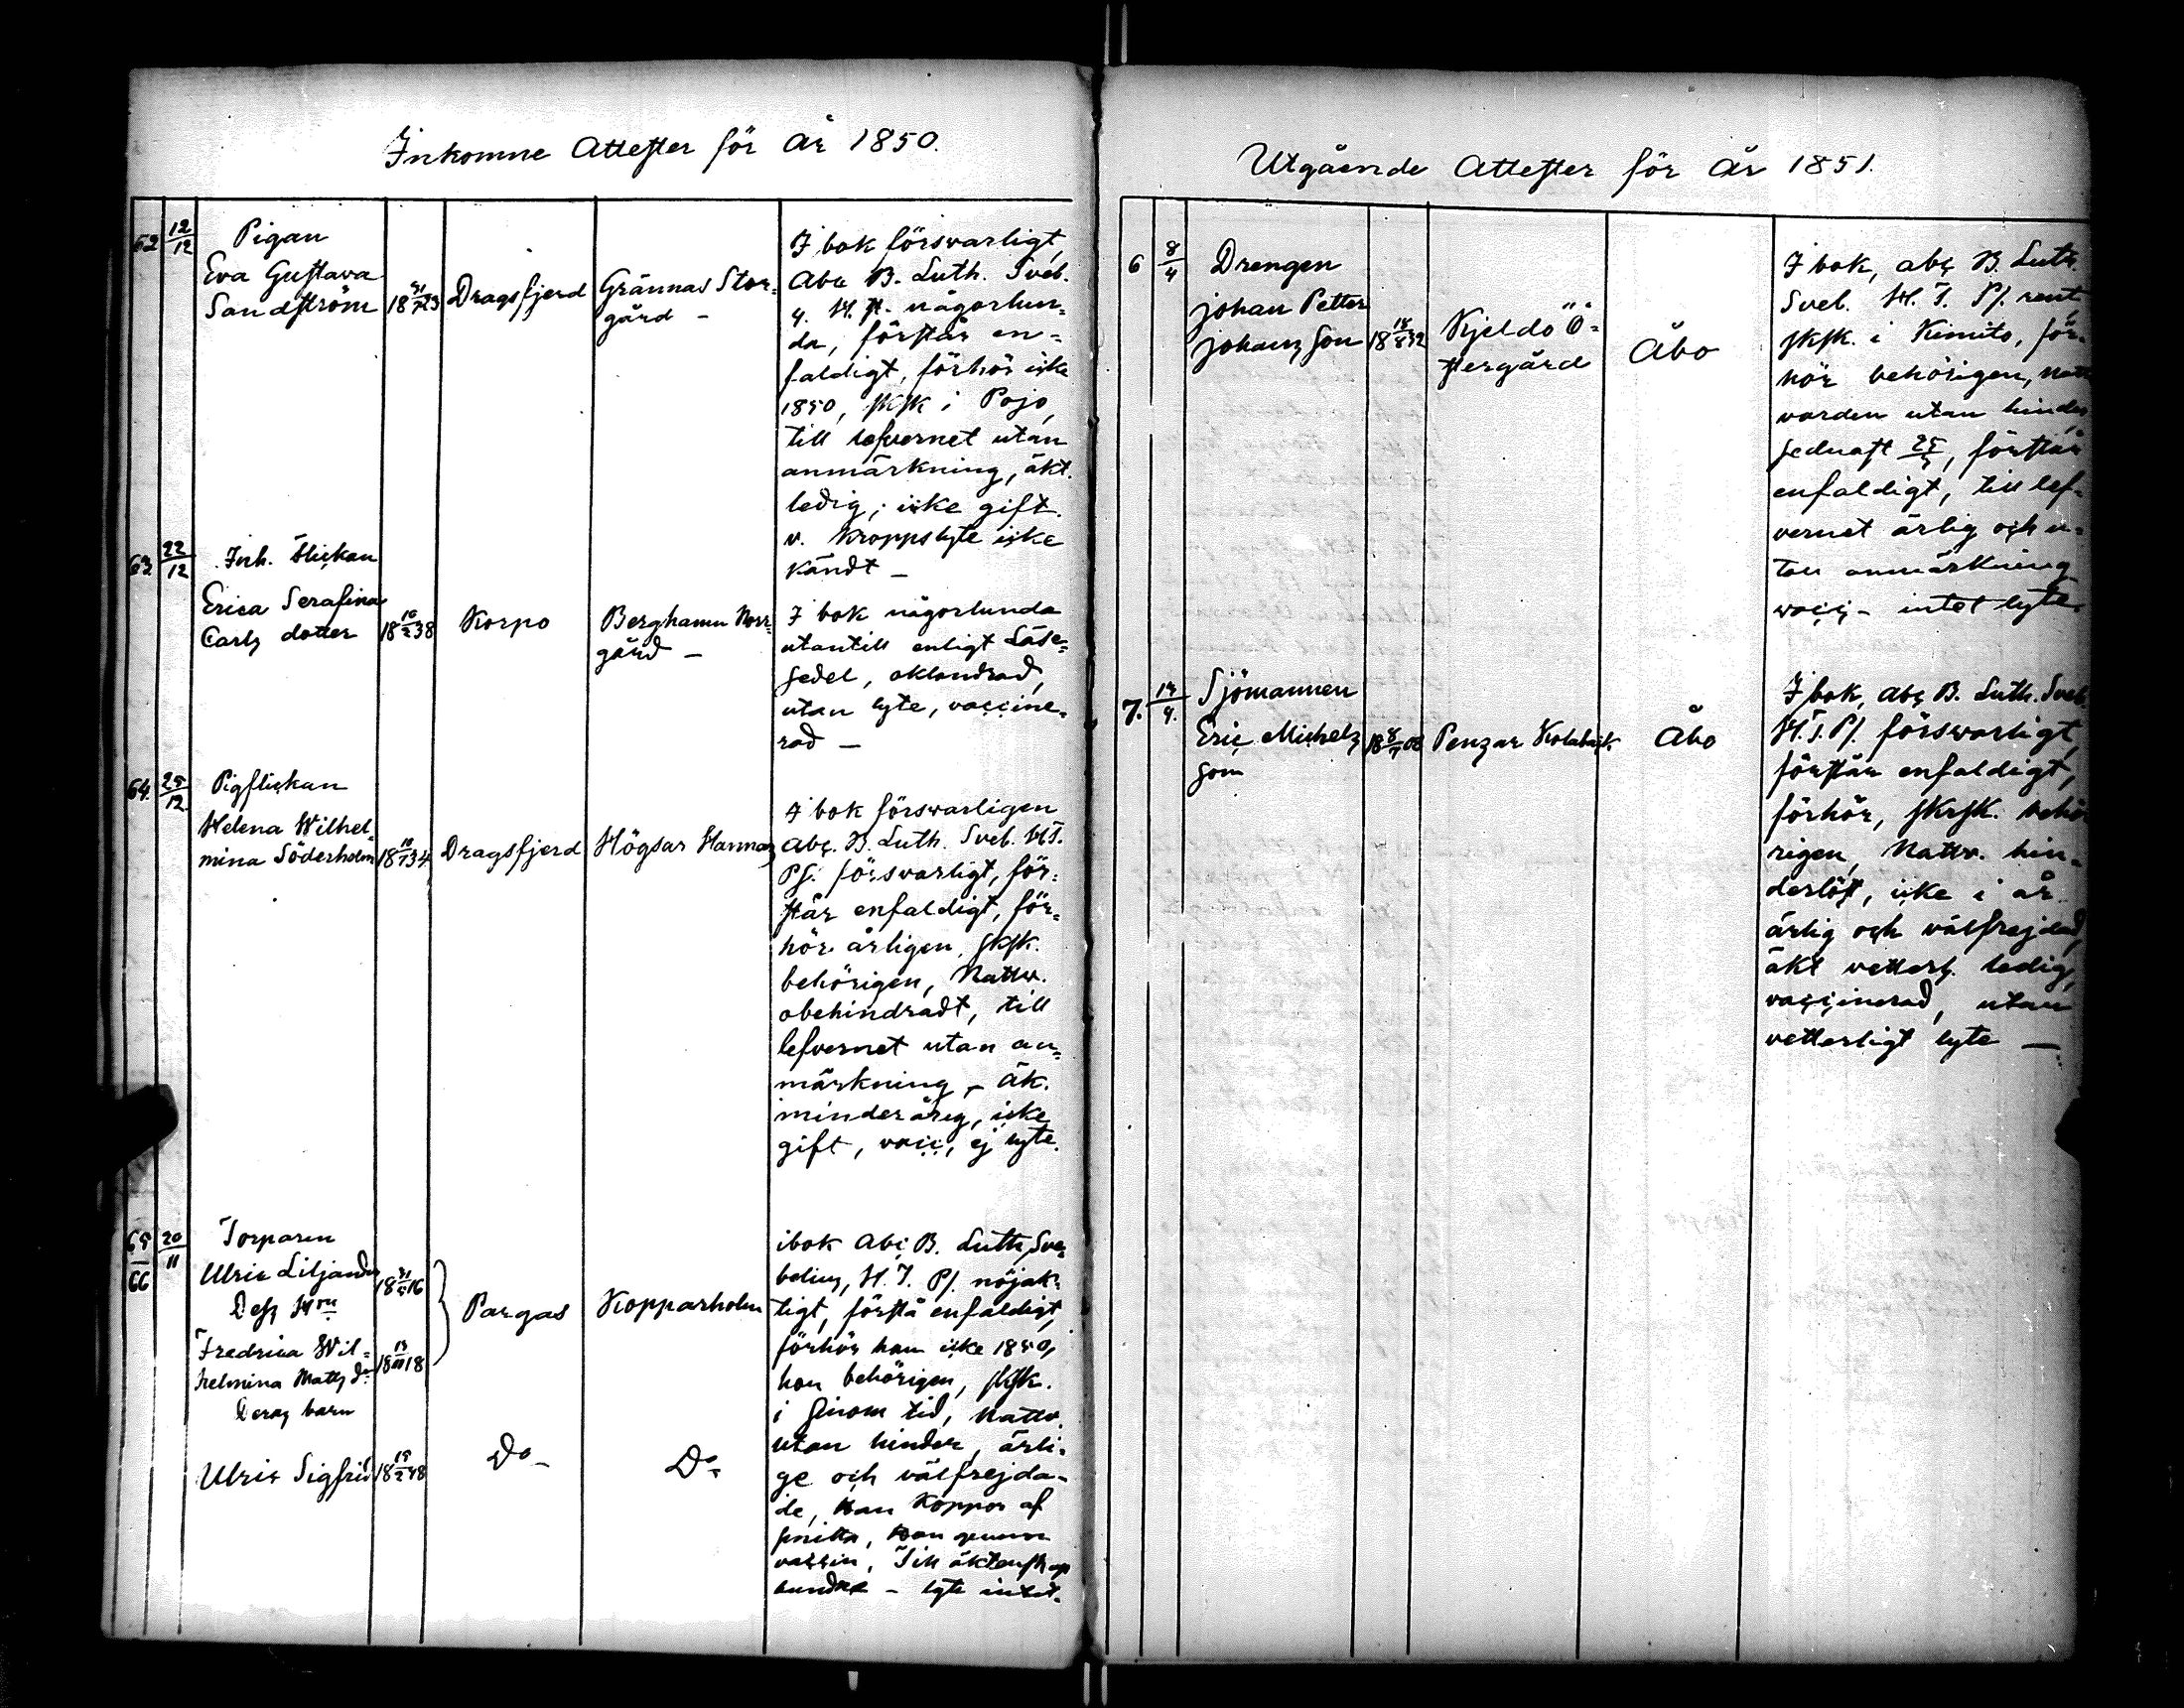 Inkomne Attester för år 1850.
62 12/12 Pigan
Eva Gustava
Sandström 18 31/7 23 Dragsfjerd Grännas Stor=
gård –
I bok försvarligt,
Abc B. Luth. Sveb.
q. H. t. någorlun=
da, förstår en=
faldigt, förhör icke
1850, sksk i Pojo,
till lefvernet utan
anmärkning, äkt.
ledig; icke gift.
v. kroppslyte icke
kändt –
63 22/12 Inh. Flickan
Erica Serafina
Carls dotter 18 10/2 38 Korpo Berghamn Norr=
gård –
I bok någorlunda
utantill enligt Läse=
sedel, oklandrad,
utan lyte, vaccine=
rad –
64. 25/12 Pigflickan
Helena Wilhel=
mina Söderholm 18 10/7 34 Dragsfjerd Högsar Hannas
I bok försvarligen
abc. B. Luth. Sveb. H.T.
Ps. försvarligt, för=
står enfaldigt, för=
hör årligen, sksk.
behörigen, Nattv.
obehindradt, till
lefvernet utan an=
märkning, – äk.
minderårig, icke
gift, vacc., ej lyte.
65/66 20/11 Torparen
Ulric Liljander 18 31/5 16
Dess Hru
Fredrica Wil=
helmina Matts dr 18 13/11 18
Pargas Kopparholm
Deras barn
Ulric Sigfrid 18 19/2 48 Do – Do –
ibok Abc B. Luth, Sve=
belius, H.T. Ps. nöjak=
tigt, förstå enfaldigt,
förhör han icke 1850,
hon behörigen, sksk.
i sinom tid, Nattv.
utan hinder, ärli=
ge och välfrejda=
de, han koppor af
smitta, hon genom
vaccin, Till äktenskap
bundne – lyte intet.
Utgående Attester för år 1851.
6 8/4 Drengen
Johan Petter
Johans Son 18 18/8 32 Kjeldo Ö=
stergård Åbo
I bok, abc B. Luth.
Sveb. H.T. Ps. rent,
sksk. i Kimito, för=
hör behörigen, natt
varden utan hinder
sednast 25/3, förstår
enfaldigt, till lef=
vernet ärlig och u=
tan anmärkning
vacc. – intet lyte.
7. 14/4. Sjömannen
Eric Michels
Son 18 8/7 08 Penzar Kolabäck Åbo
I bok, abc B. Luth. Sveb.
H.T. Ps. försvarligt,
förstår enfaldigt,
förhör, skrsk. behö
rigen, Nattv. hin=
derlöst, icke i år.
ärlig och välfrejdad,
äkt vetterl. ledig,
vaccinerad, utan
vetterligt lyte –